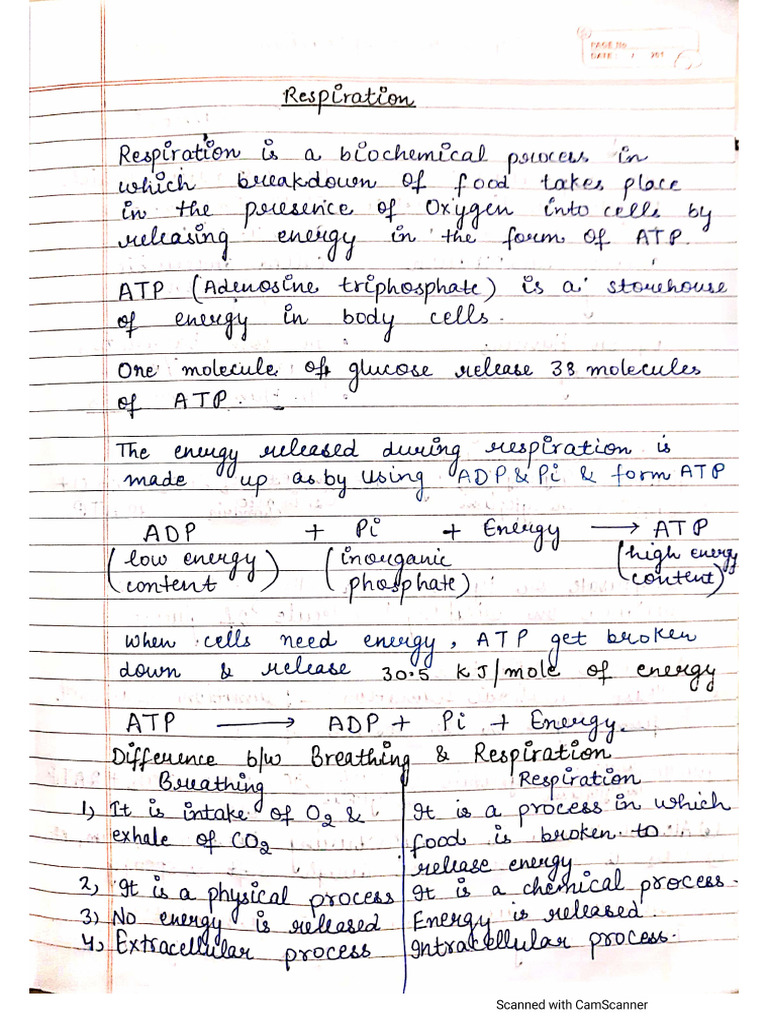 PAGE No.
DATE: / /201
Respiration
Respiration is a biochemical process in
which breakdown of food takes place
in the presence of Oxygen into cells by
releasing energy in the form of ATP.
ATP (Adenosine triphosphate) is a storehouse
of energy in body cells.
One molecule of glucose release 38 molecules
of ATP.
The energy released during respiration is
made up as by using ADP & Pi & form ATP
ADP + Pi + Energy → ATP
(low energy content) (inorganic phosphate) (high energy content)
When cells need energy, ATP get broken
down & release 30.5 KJ/mole of energy
ATP → ADP + Pi + Energy.
Difference b/w Breathing & Respiration
Breathing Respiration
1) It is intake of O2 & It is a process in which
exhale of CO2 food is broken to
release energy
2) It is a physical process It is a chemical process.
3) No energy is released Energy is released.
4) Extracellular process Intracellular process.
Scanned with CamScanner